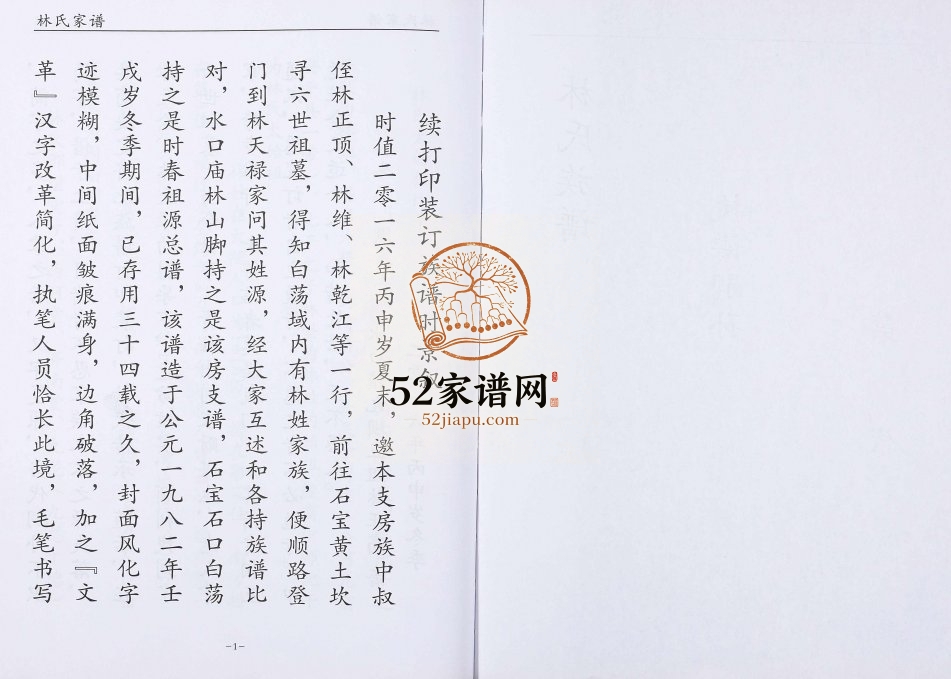 林氏家谱
续打印装订族谱时景叙
时值二零一六年丙申岁夏末，邀本支房族中叔
侄林正顶、林维、林乾江等一行，前往石宝黄土坎
寻六世祖墓，得知白荡域内有林姓家族，便顺路登
门到林天禄家问其姓源，经大家互述和各持族谱比
对，水口庙林山脚持之是该房支谱，石宝石口白荡
持之是时春祖源总谱，该谱造于公元一九八二年壬
戌岁冬季期间，已存用三十四载之久，封面风化字
迹模糊，中间纸面皱痕满身，边角破落，加之『文
革』汉字改革简化，执笔人员恰长此境，毛笔书写
-1-
52家谱网
52jiapu.com